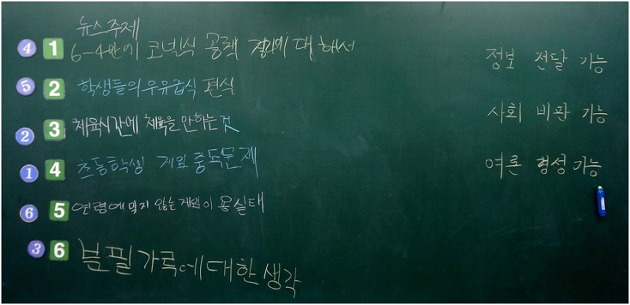 뉴스주제
④ 1 6-4반이 코넬식 공책 정리에 대해서
⑤ 2 학생들의 우유급식 편식
② 3 체육시간에 체육을 안하는 것
① 4 초등학생 게임 중독문제
⑥ 5 연령에 맞지 않는 게임이용실태
③ 6 분필가루에 대한 생각
정보 전달 기능
사회 비판 기능
여론 형성 기능